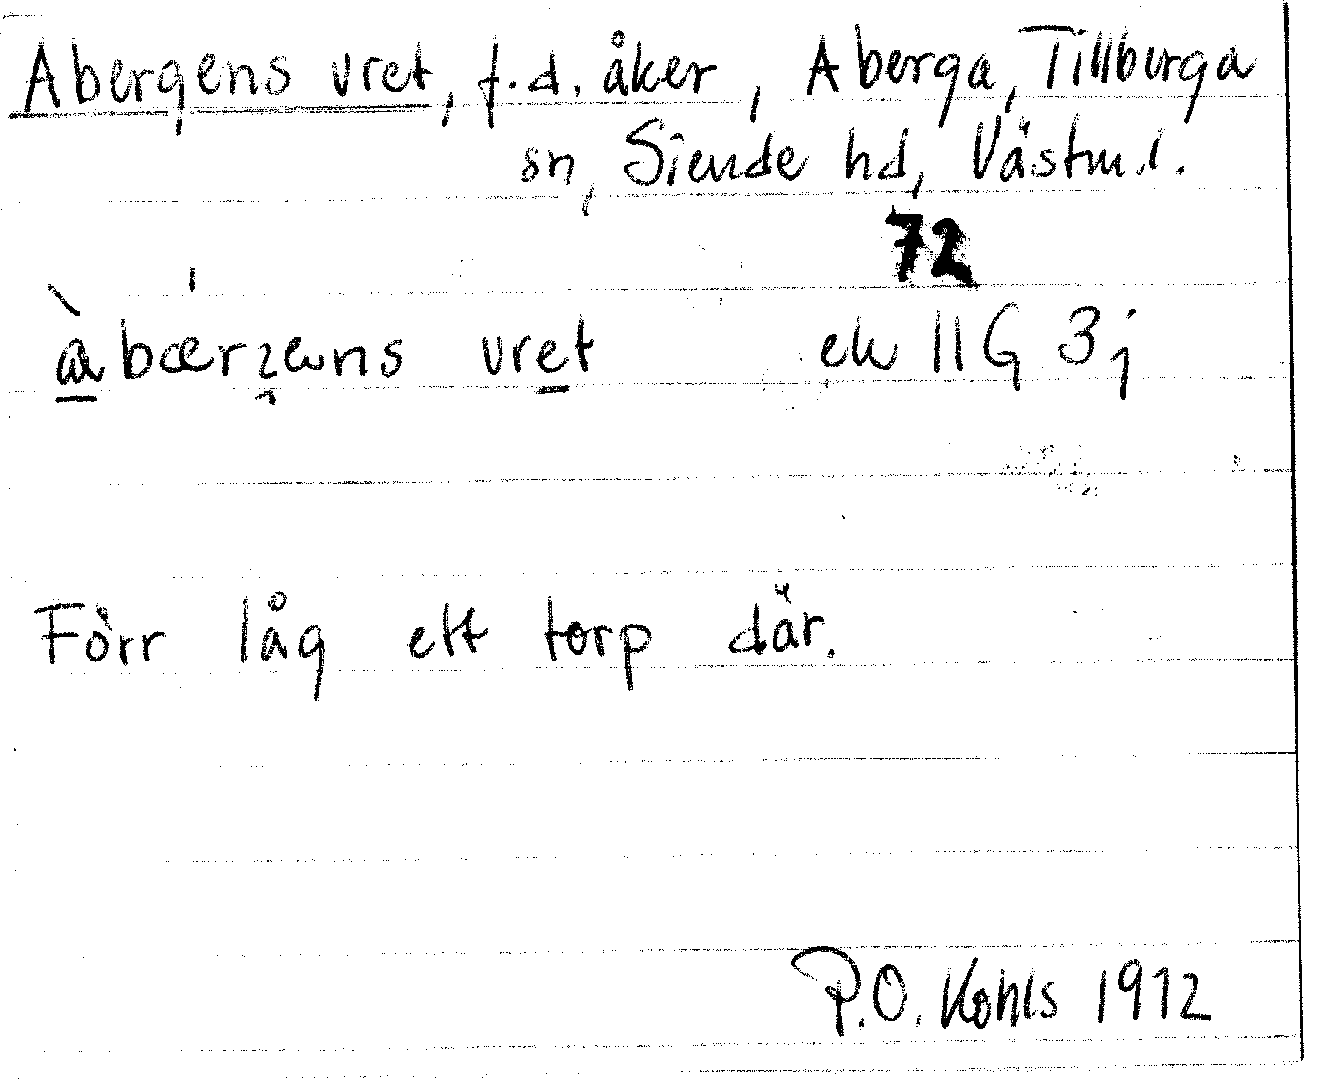 Abergens vret, f.d. åker, Aberga, Tillberga
sn, Siende hd, Västm.l.
72
àbærgens vret ek 11G 3j
Förr låg ett torp där.
P.O. Kohls 1972